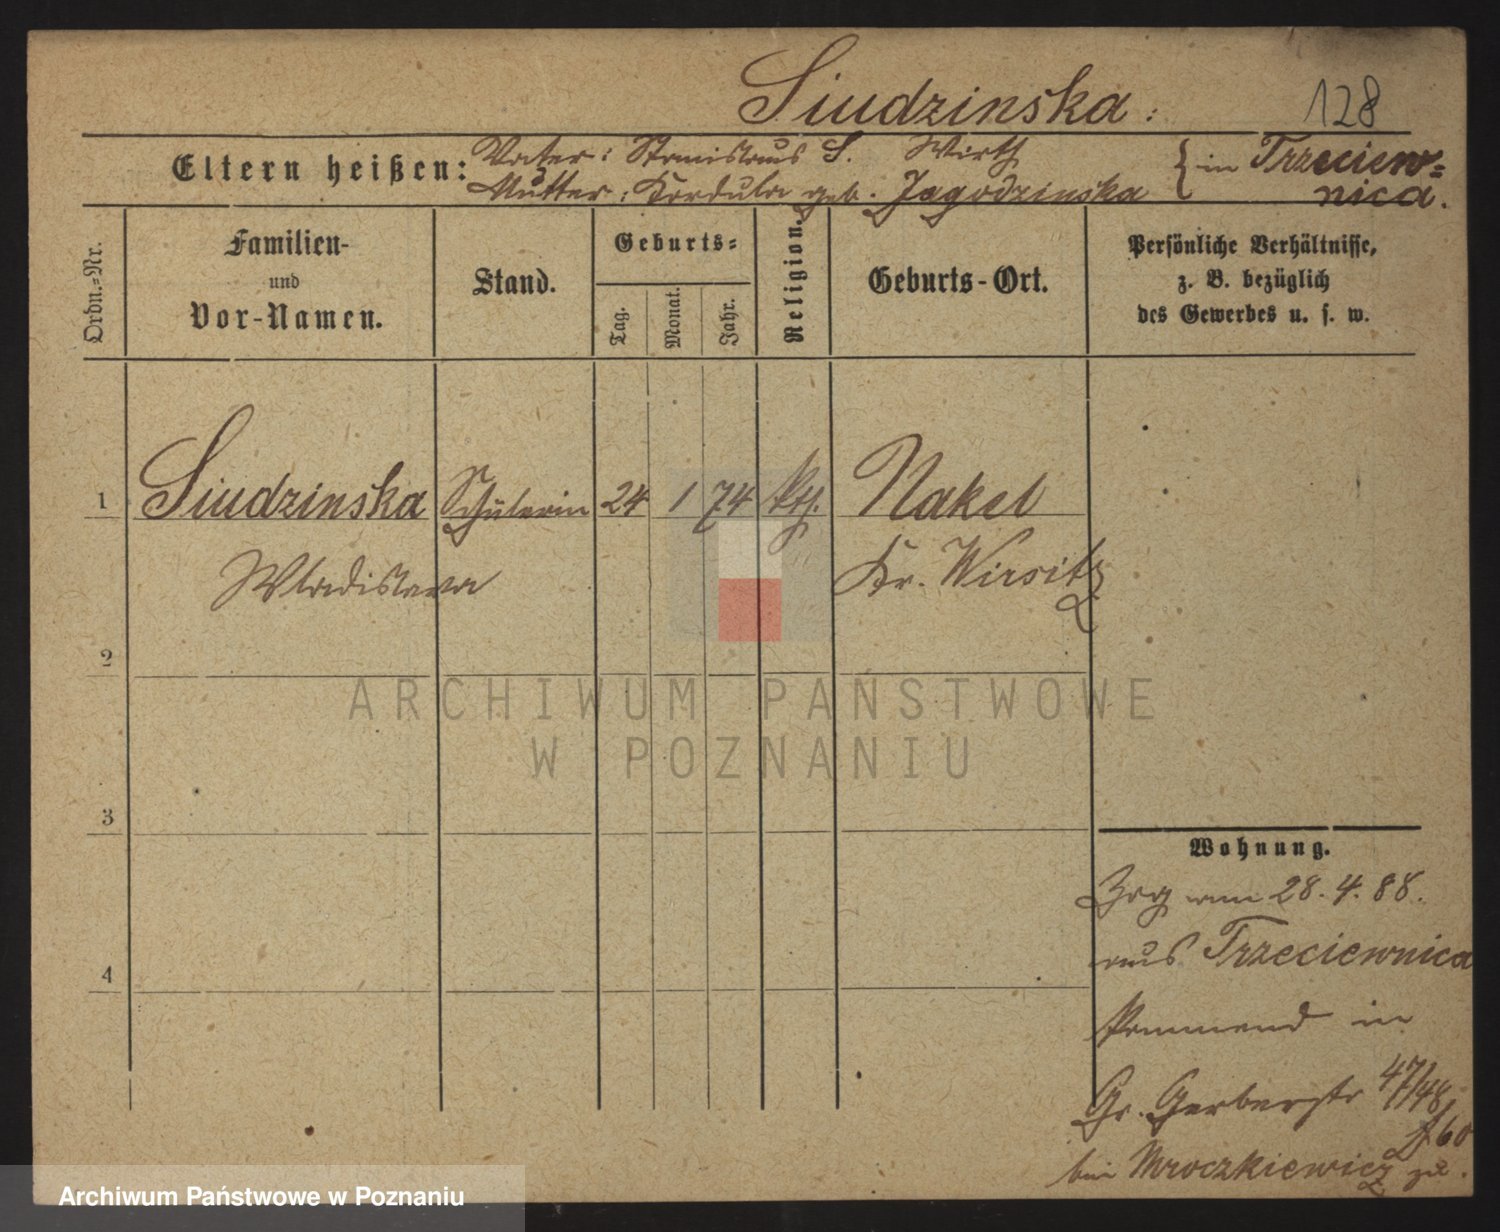 Siudzinska:
128
Eltern heißen:
Vater: Stanislaus S. Wirth
Mutter: Kordula geb. Jagodzinska
in Trzeciew=
nica.
Ordn.=Nr.
Familien-
und
Vor-Namen.
Stand.
Geburts=
Tag.
Monat.
Jahr.
Religion.
Geburts-Ort.
Persönliche Verhältnisse,
z. B. bezüglich
des Gewerbes u. s. w.
1 Siudzinska Schülerin 24 1 74 kth. Nakel
Wladislawa Kr. Wirsitz
2
3
4
Wohnung.
Zog am 28. 4. 88.
aus Trzeciewnica
kommend in
Gr. Gerberstr 47/48
bei Mroczkiewicz zu.
ARCHIWUM PAŃSTWOWE
W POZNANIU
Archiwum Państwowe w Poznaniu